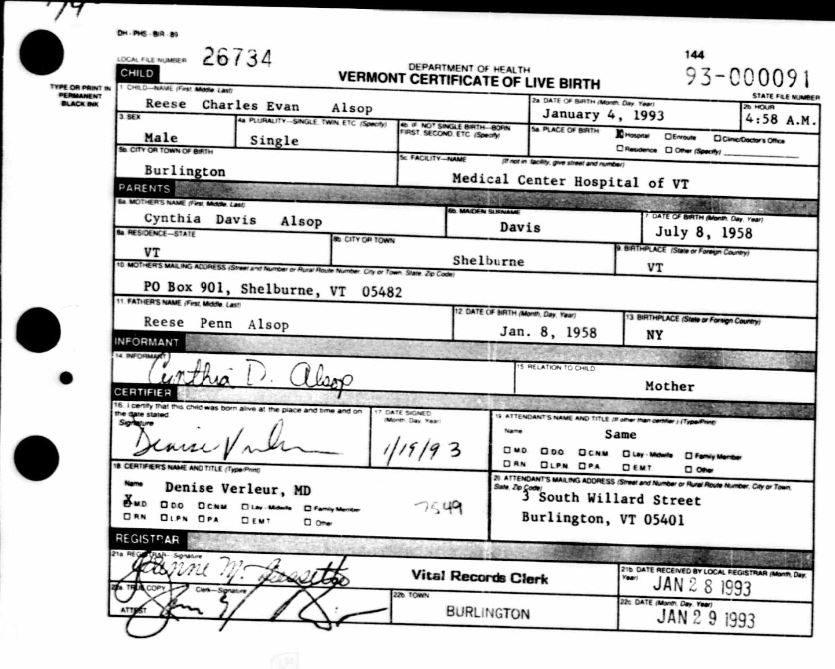 DH - PHS - BIR - 89
LOCAL FILE NUMBER 26734
144
DEPARTMENT OF HEALTH
VERMONT CERTIFICATE OF LIVE BIRTH
93-000091
STATE FILE NUMBER
TYPE OR PRINT IN PERMANENT BLACK INK
CHILD
1. CHILD—NAME (First, Middle, Last)
Reese Charles Evan Alsop
2a. DATE OF BIRTH (Month, Day, Year)
January 4, 1993
2b. HOUR
4:58 A.M.
3. SEX
Male
4a. PLURALITY—SINGLE, TWIN, ETC. (Specify)
Single
4b. IF NOT SINGLE BIRTH—BORN FIRST, SECOND, ETC. (Specify)
5a. PLACE OF BIRTH
X Hospital Enroute Clinic/Doctor's Office
Residence Other (Specify)
5b. CITY OR TOWN OF BIRTH
Burlington
5c. FACILITY—NAME (If not in facility, give street and number)
Medical Center Hospital of VT
PARENTS
6a. MOTHER'S NAME (First, Middle, Last)
Cynthia Davis Alsop
6b. MAIDEN SURNAME
Davis
7. DATE OF BIRTH (Month, Day, Year)
July 8, 1958
8a. RESIDENCE—STATE
VT
8b. CITY OR TOWN
Shelburne
9. BIRTHPLACE (State or Foreign Country)
VT
10. MOTHER'S MAILING ADDRESS (Street and Number or Rural Route Number, City or Town, State, Zip Code)
PO Box 901, Shelburne, VT 05482
11. FATHER'S NAME (First, Middle, Last)
Reese Penn Alsop
12. DATE OF BIRTH (Month, Day, Year)
Jan. 8, 1958
13. BIRTHPLACE (State or Foreign Country)
NY
INFORMANT
14. INFORMANT
Cynthia D. Alsop
15. RELATION TO CHILD
Mother
CERTIFIER
16. I certify that this child was born alive at the place and time and on the date stated
Signature
Denise
17. DATE SIGNED (Month, Day, Year)
1/19/93
18. CERTIFIER'S NAME AND TITLE (Type/Print)
Name Denise Verleur, MD
X M.D. D.O. C.N.M. Lay - Midwife Family Member
R.N. L.P.N. P.A. E.M.T. Other
7549
19. ATTENDANT'S NAME AND TITLE (If other than certifier) (Type/Print)
Name Same
M.D. D.O. C.N.M. Lay - Midwife Family Member
R.N. L.P.N. P.A. E.M.T. Other
20. ATTENDANT'S MAILING ADDRESS (Street and Number or Rural Route Number, City or Town, State, Zip Code)
3 South Willard Street
Burlington, VT 05401
REGISTRAR
21a. REGISTRAR - Signature
M.
Vital Records Clerk
21b. DATE RECEIVED BY LOCAL REGISTRAR (Month, Day, Year)
JAN 28 1993
22a. TRUE COPY Clerk—Signature
ATTEST
22b. TOWN
BURLINGTON
22c. DATE (Month, Day, Year)
JAN 29 1993